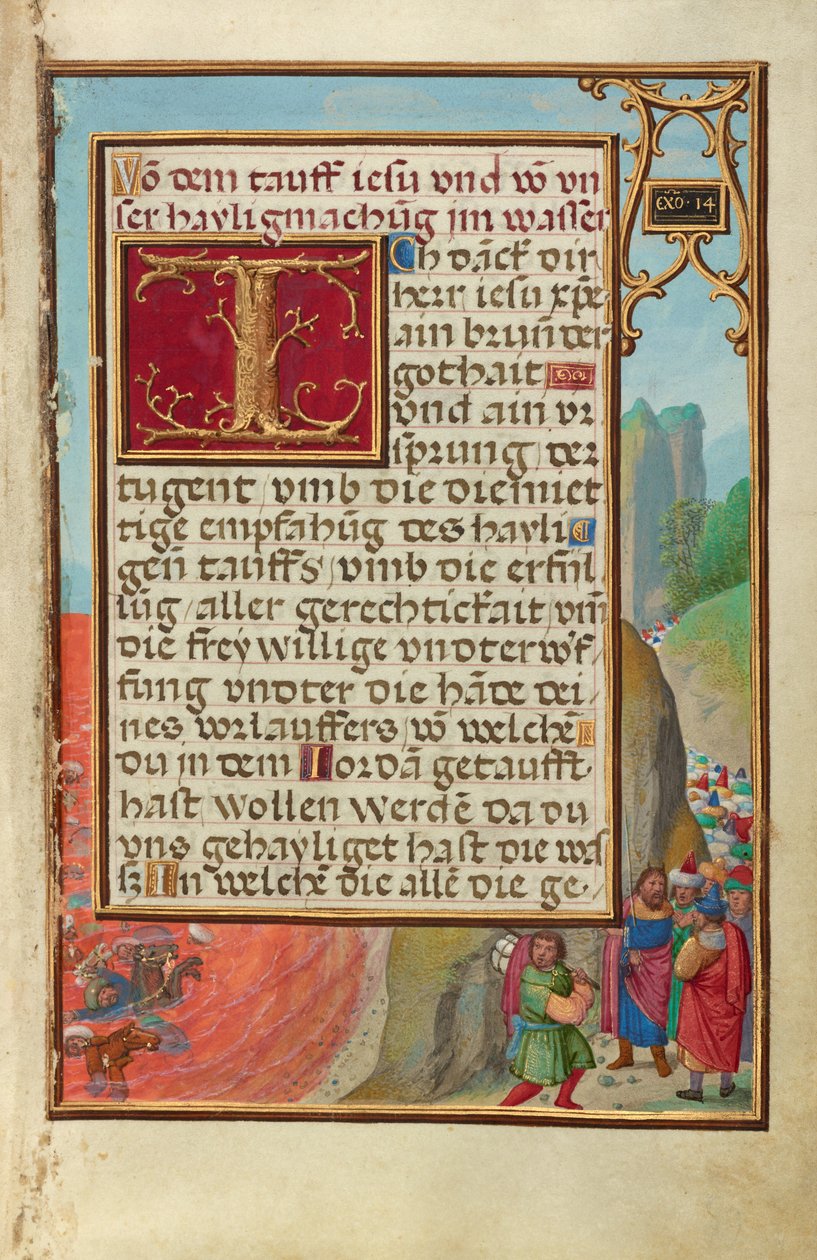 Vō dem tauff iesu vnd vō vn
ser hayligmachūg jm wasser
EXO · 14
ICh dāck dir
herr iesu xp̄e
ain brun̄ der
gothait
vnd ain vr
sprung der
tugent vmb die diemiet
tige empfahūg des hayli
gen̄ tauffs, vmb die erfŭl
lūg aller gerechtickait vm̄
die frey willige vndterw'f
fung vndter die hāde dei
nes vorlauffers, vō welchē
du in dem Iordā getaufft
hast wollen werdē da du
vns gehayliget hast die was
sz In welchē die allē die ge